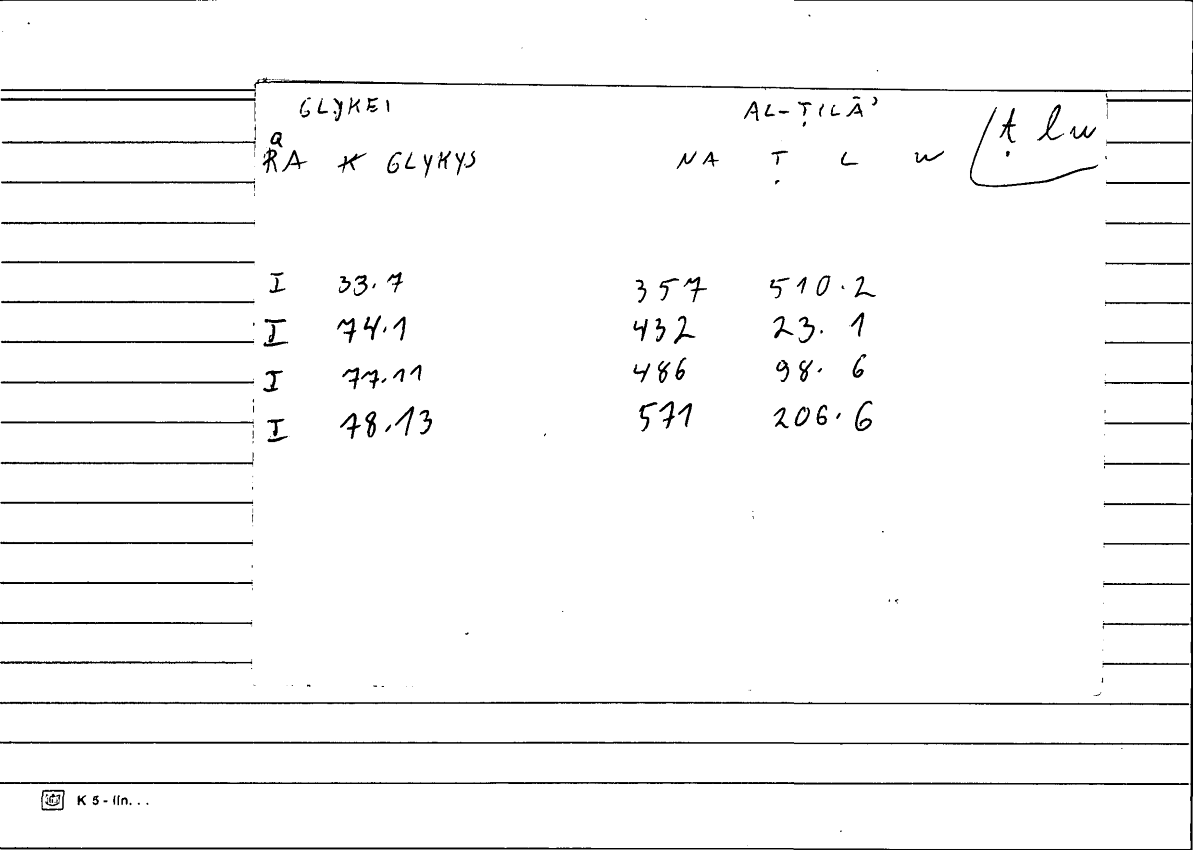 GLYKEI AL-ṬILĀʾ
Q ṭ lw
RA K GLYKYS NA Ṭ L W
I 33.7 357 510.2
I 74.1 432 23. 1
I 77.11 486 98. 6
I 78.13 571 206.6
K 5 - lin. . .